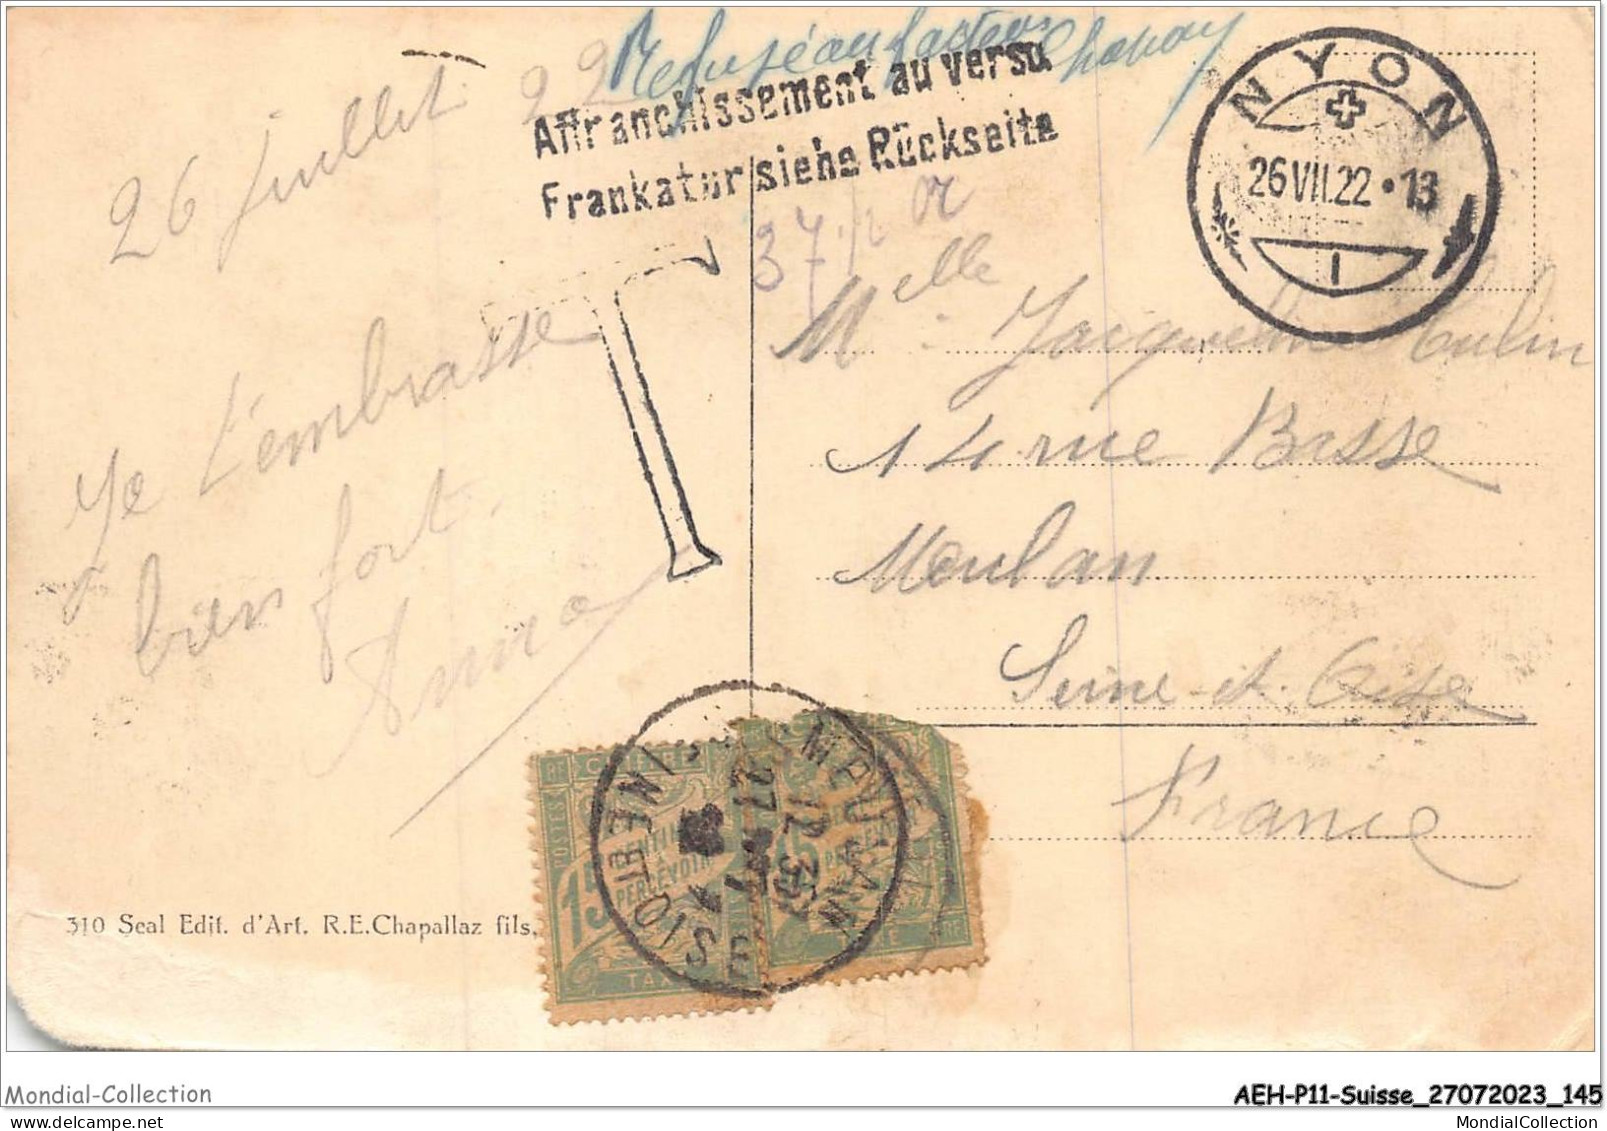 26 juillet 22
Refusé au facteur
Affranchissement au verso.
Frankatur siehe Rückseite
T
NYON
26 VII.22 • 13
1
Melle Jacqueline
14 rue Basse
Meulan
Seine-et-Oise
France
Je t'embrasse
bien fort.
Anna
15 CENTIMES
A PERCEVOIR
POSTES
TAXE
MEULAN
SEINE ET OISE
12 30
27
310 Seal Edit. d'Art. R.E.Chapallaz fils,
Mondial-Collection
AEH-P11-Suisse_27072023_145
MondialCollection